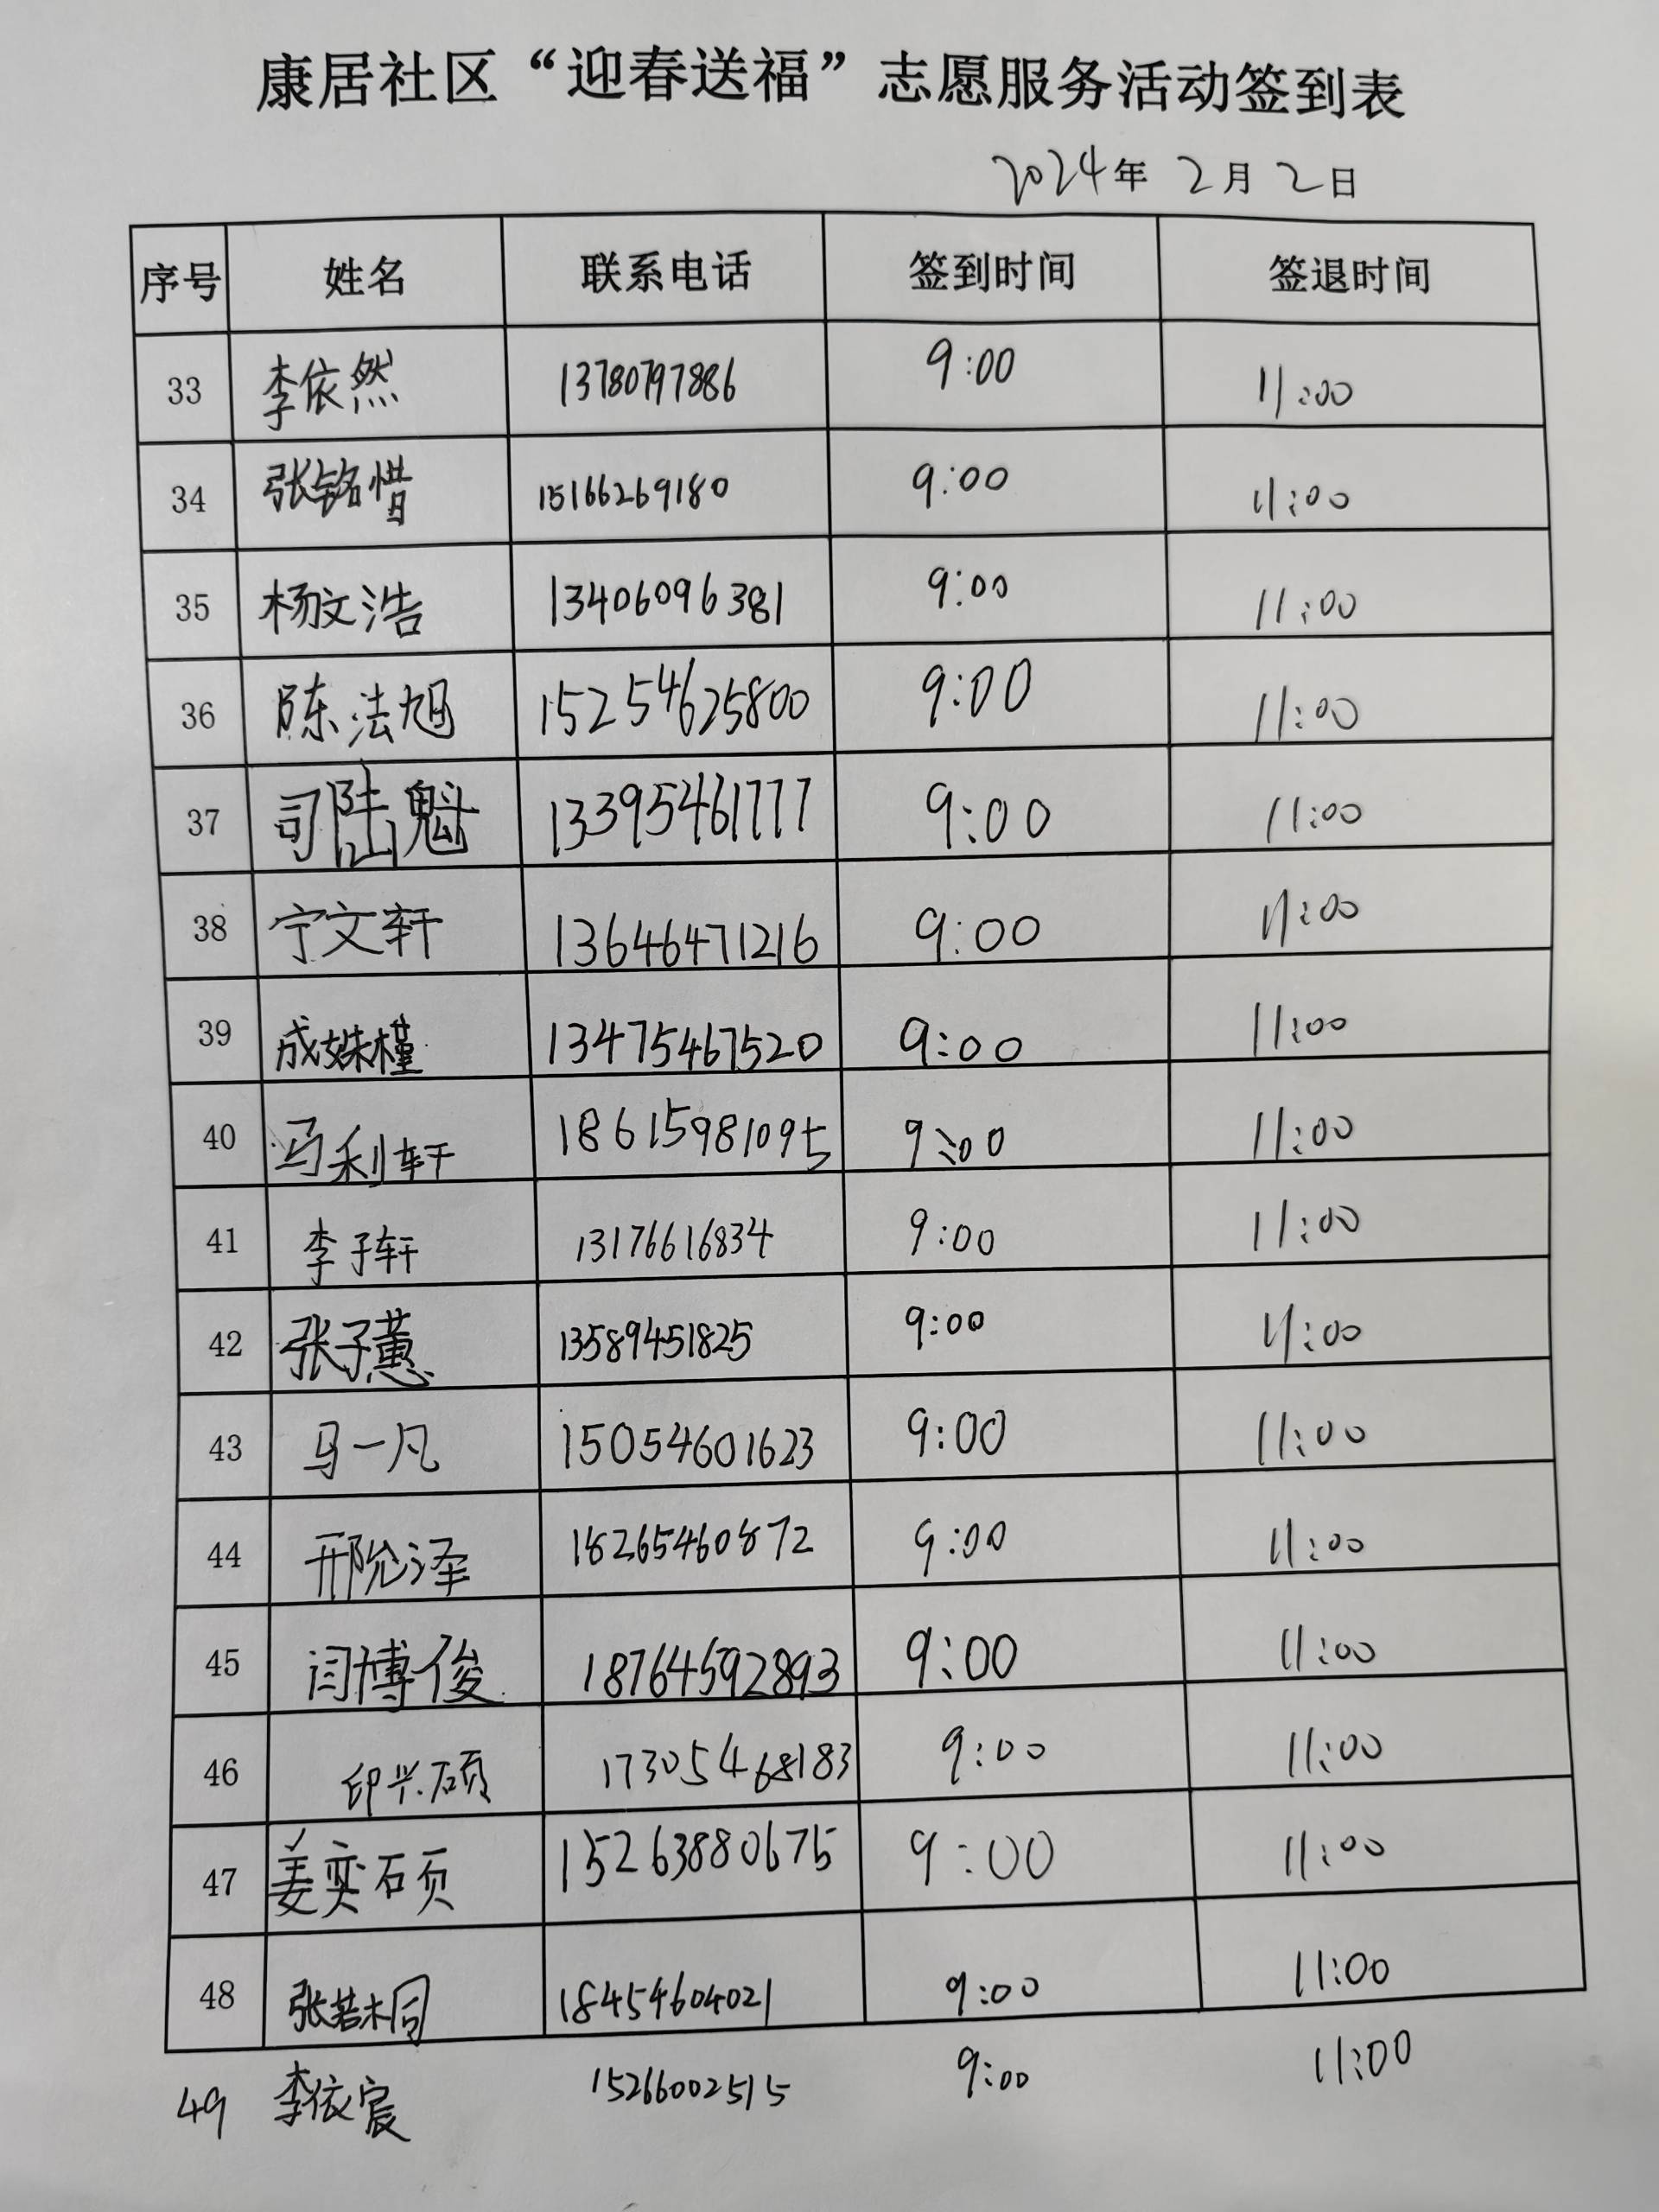 康居社区“迎春送福”志愿服务活动签到表
2024年 2月 2日
序号 姓名 联系电话 签到时间 签退时间
33 李依然 13780797886 9:00 11:00
34 张铭惜 15166269180 9:00 11:00
35 杨文浩 13406096381 9:00 11:00
36 陈法旭 15254625800 9:00 11:00
37 司陆魁 13395461777 9:00 11:00
38 宁文轩 13646471216 9:00 11:00
39 成姝槿 13475467520 9:00 11:00
40 马利轩 18615981095 9:00 11:00
41 李子轩 13176616834 9:00 11:00
42 张子蕙 13589451825 9:00 11:00
43 马一凡 15054601623 9:00 11:00
44 邢允泽 18265460872 9:00 11:00
45 闫博俊 18764592893 9:00 11:00
46 印兴硕 17305468183 9:00 11:00
47 姜奕硕 15263880675 9:00 11:00
48 张若桐 18454604021 9:00 11:00
49 李依宸 15266002515 9:00 11:00